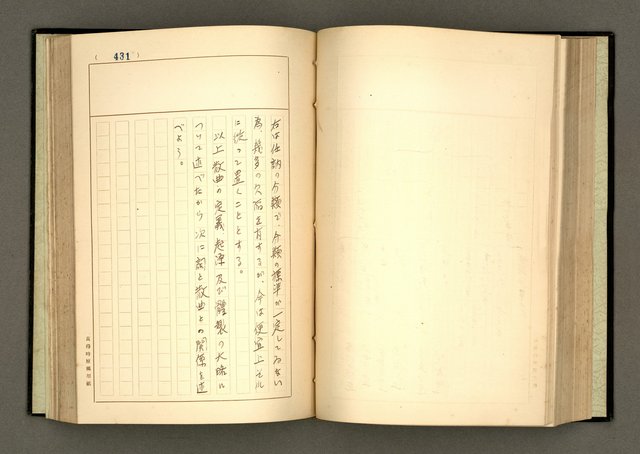 431
右は任訥の分類で、分類の標準が一定してゐない
為、幾多の欠陥を有するが、今は便宜上それ
に従つて置くこととする。
以上散曲の定義、起源及び體製の大略に
ついて述べたから次に詞と散曲との関係を述
べよう。